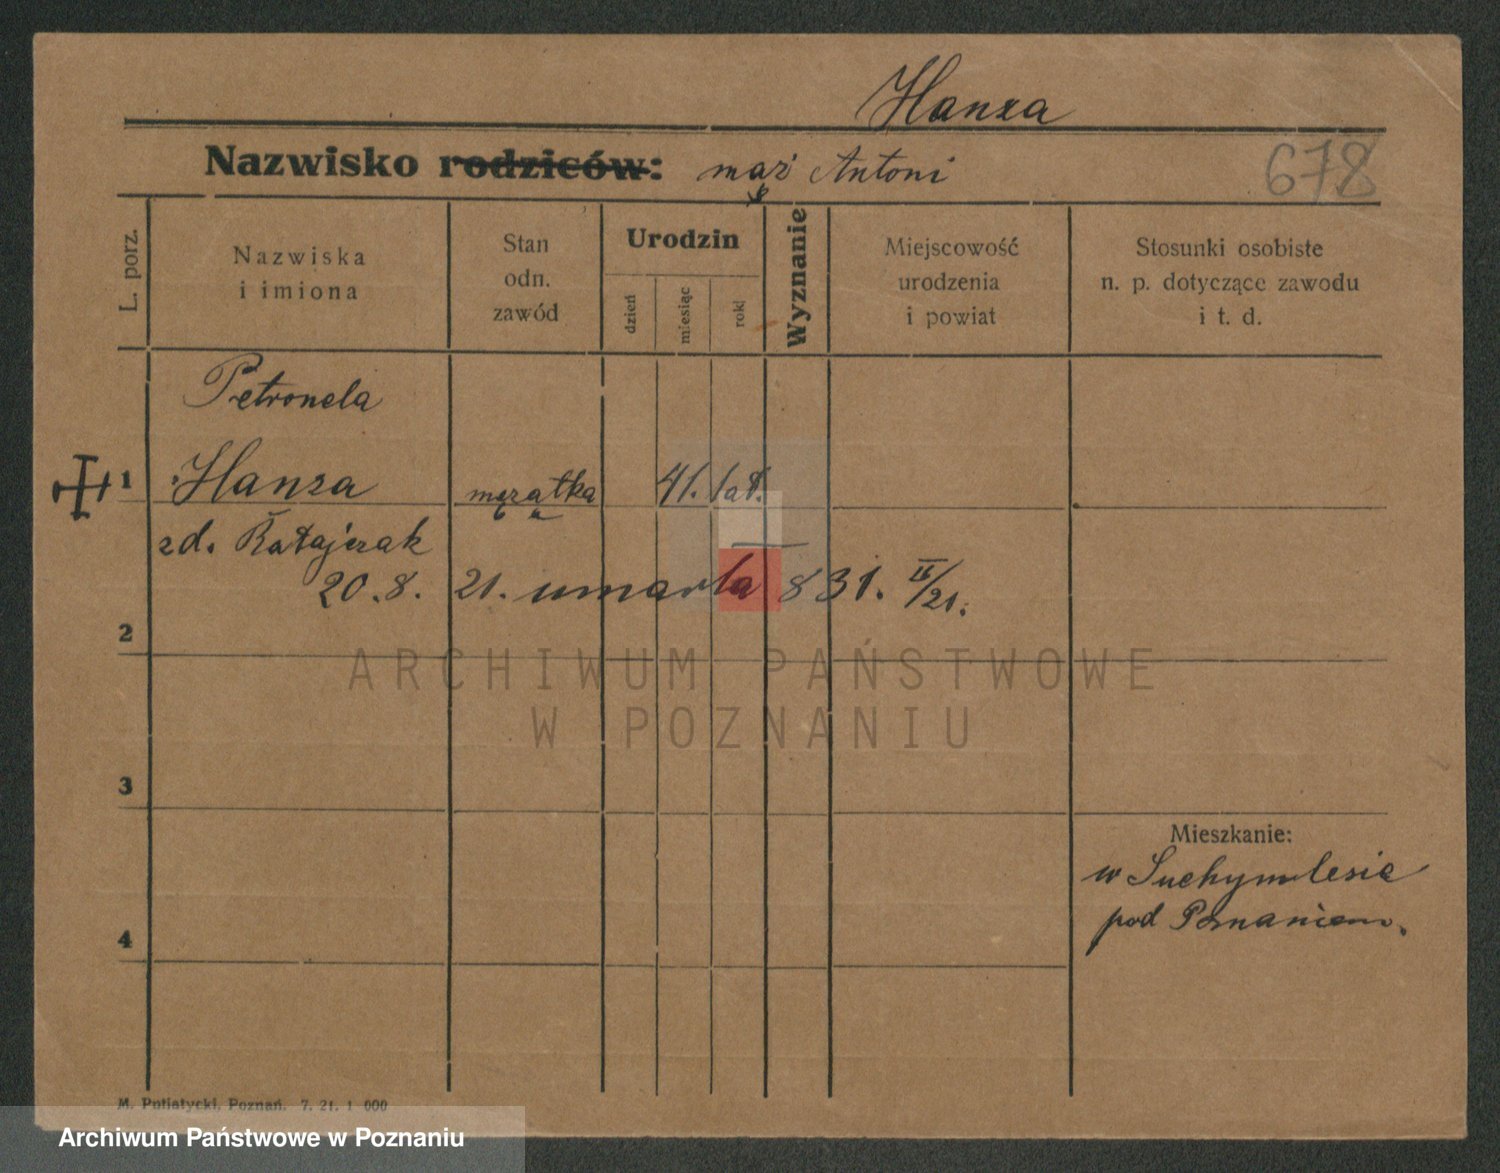 Hanza
Nazwisko rodziców: mąż Antoni
678
L. porz.
Nazwiska
i imiona
Stan
odn.
zawód
Urodzin
dzień
miesiąc
rok
Wyznanie
Miejscowość
urodzenia
i powiat
Stosunki osobiste
n. p. dotyczące zawodu
i t. d.
Petronela
1 Hanza mężatka 41. lat.
zd. Ratajczak
20.8. 21. umarła 831. II/21.
2
ARCHIWUM PAŃSTWOWE
W POZNANIU
3
Mieszkanie:
w Suchymlesie
pod Poznaniem.
4
M. Putiatycki, Poznań. 7. 21. 1 000
Archiwum Państwowe w Poznaniu